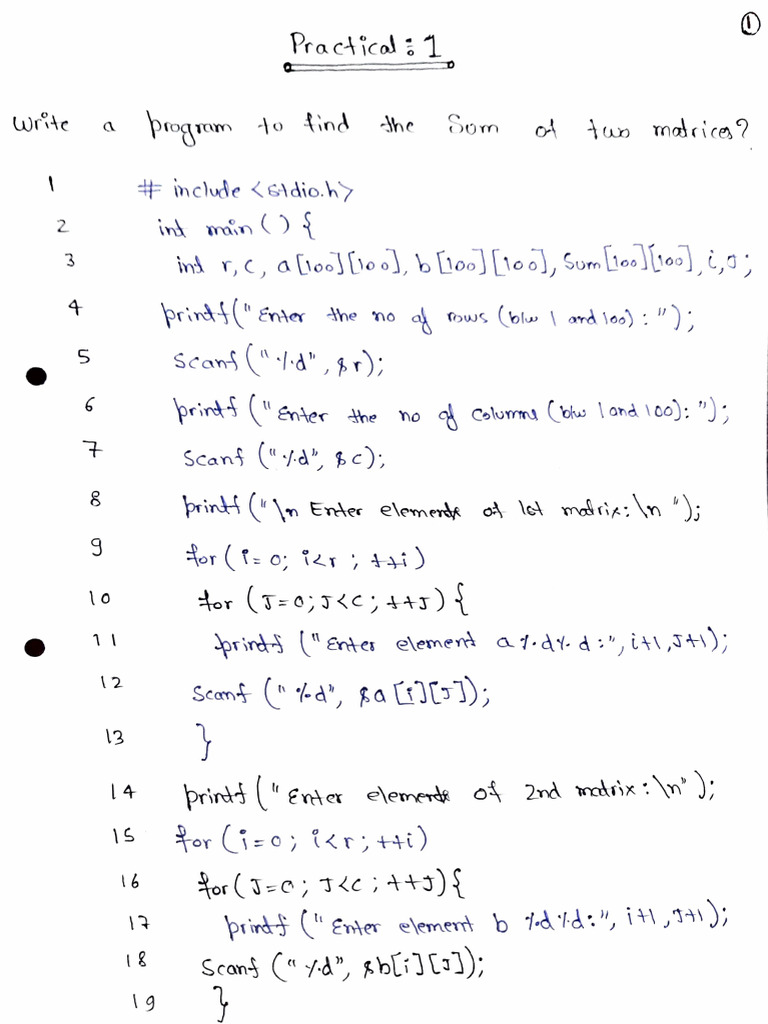 ①
Practical : 1
Write a program to find the Sum of two matrices?
1 # include <stdio.h>
2 int main () {
3 int r, c, a [100][100], b [100][100], Sum [100][100], i, J;
4 printf(" Enter the no of rows (b/w 1 and 100) : ");
5 Scanf (" %d", &r);
6 printf ("Enter the no of Columns (b/w 1 and 100): ");
7 Scanf (" %d", &c);
8 printf (" \n Enter elements of 1st matrix: \n ");
9 for (i= 0; i<r ; ++i)
10 for (J=0; J<C ; ++J) {
11 printf ("Enter element a %d%d :", i+1, J+1);
12 Scanf (" %d", &a [i][J]);
13 }
14 printf (" Enter elements of 2nd matrix : \n" );
15 for (i=0 ; i<r ; ++i)
16 for (J=0 ; J<C ; ++J) {
17 printf (" Enter element b %d%d:", i+1, J+1);
18 Scanf (" %d", &b[i][J]);
19 }